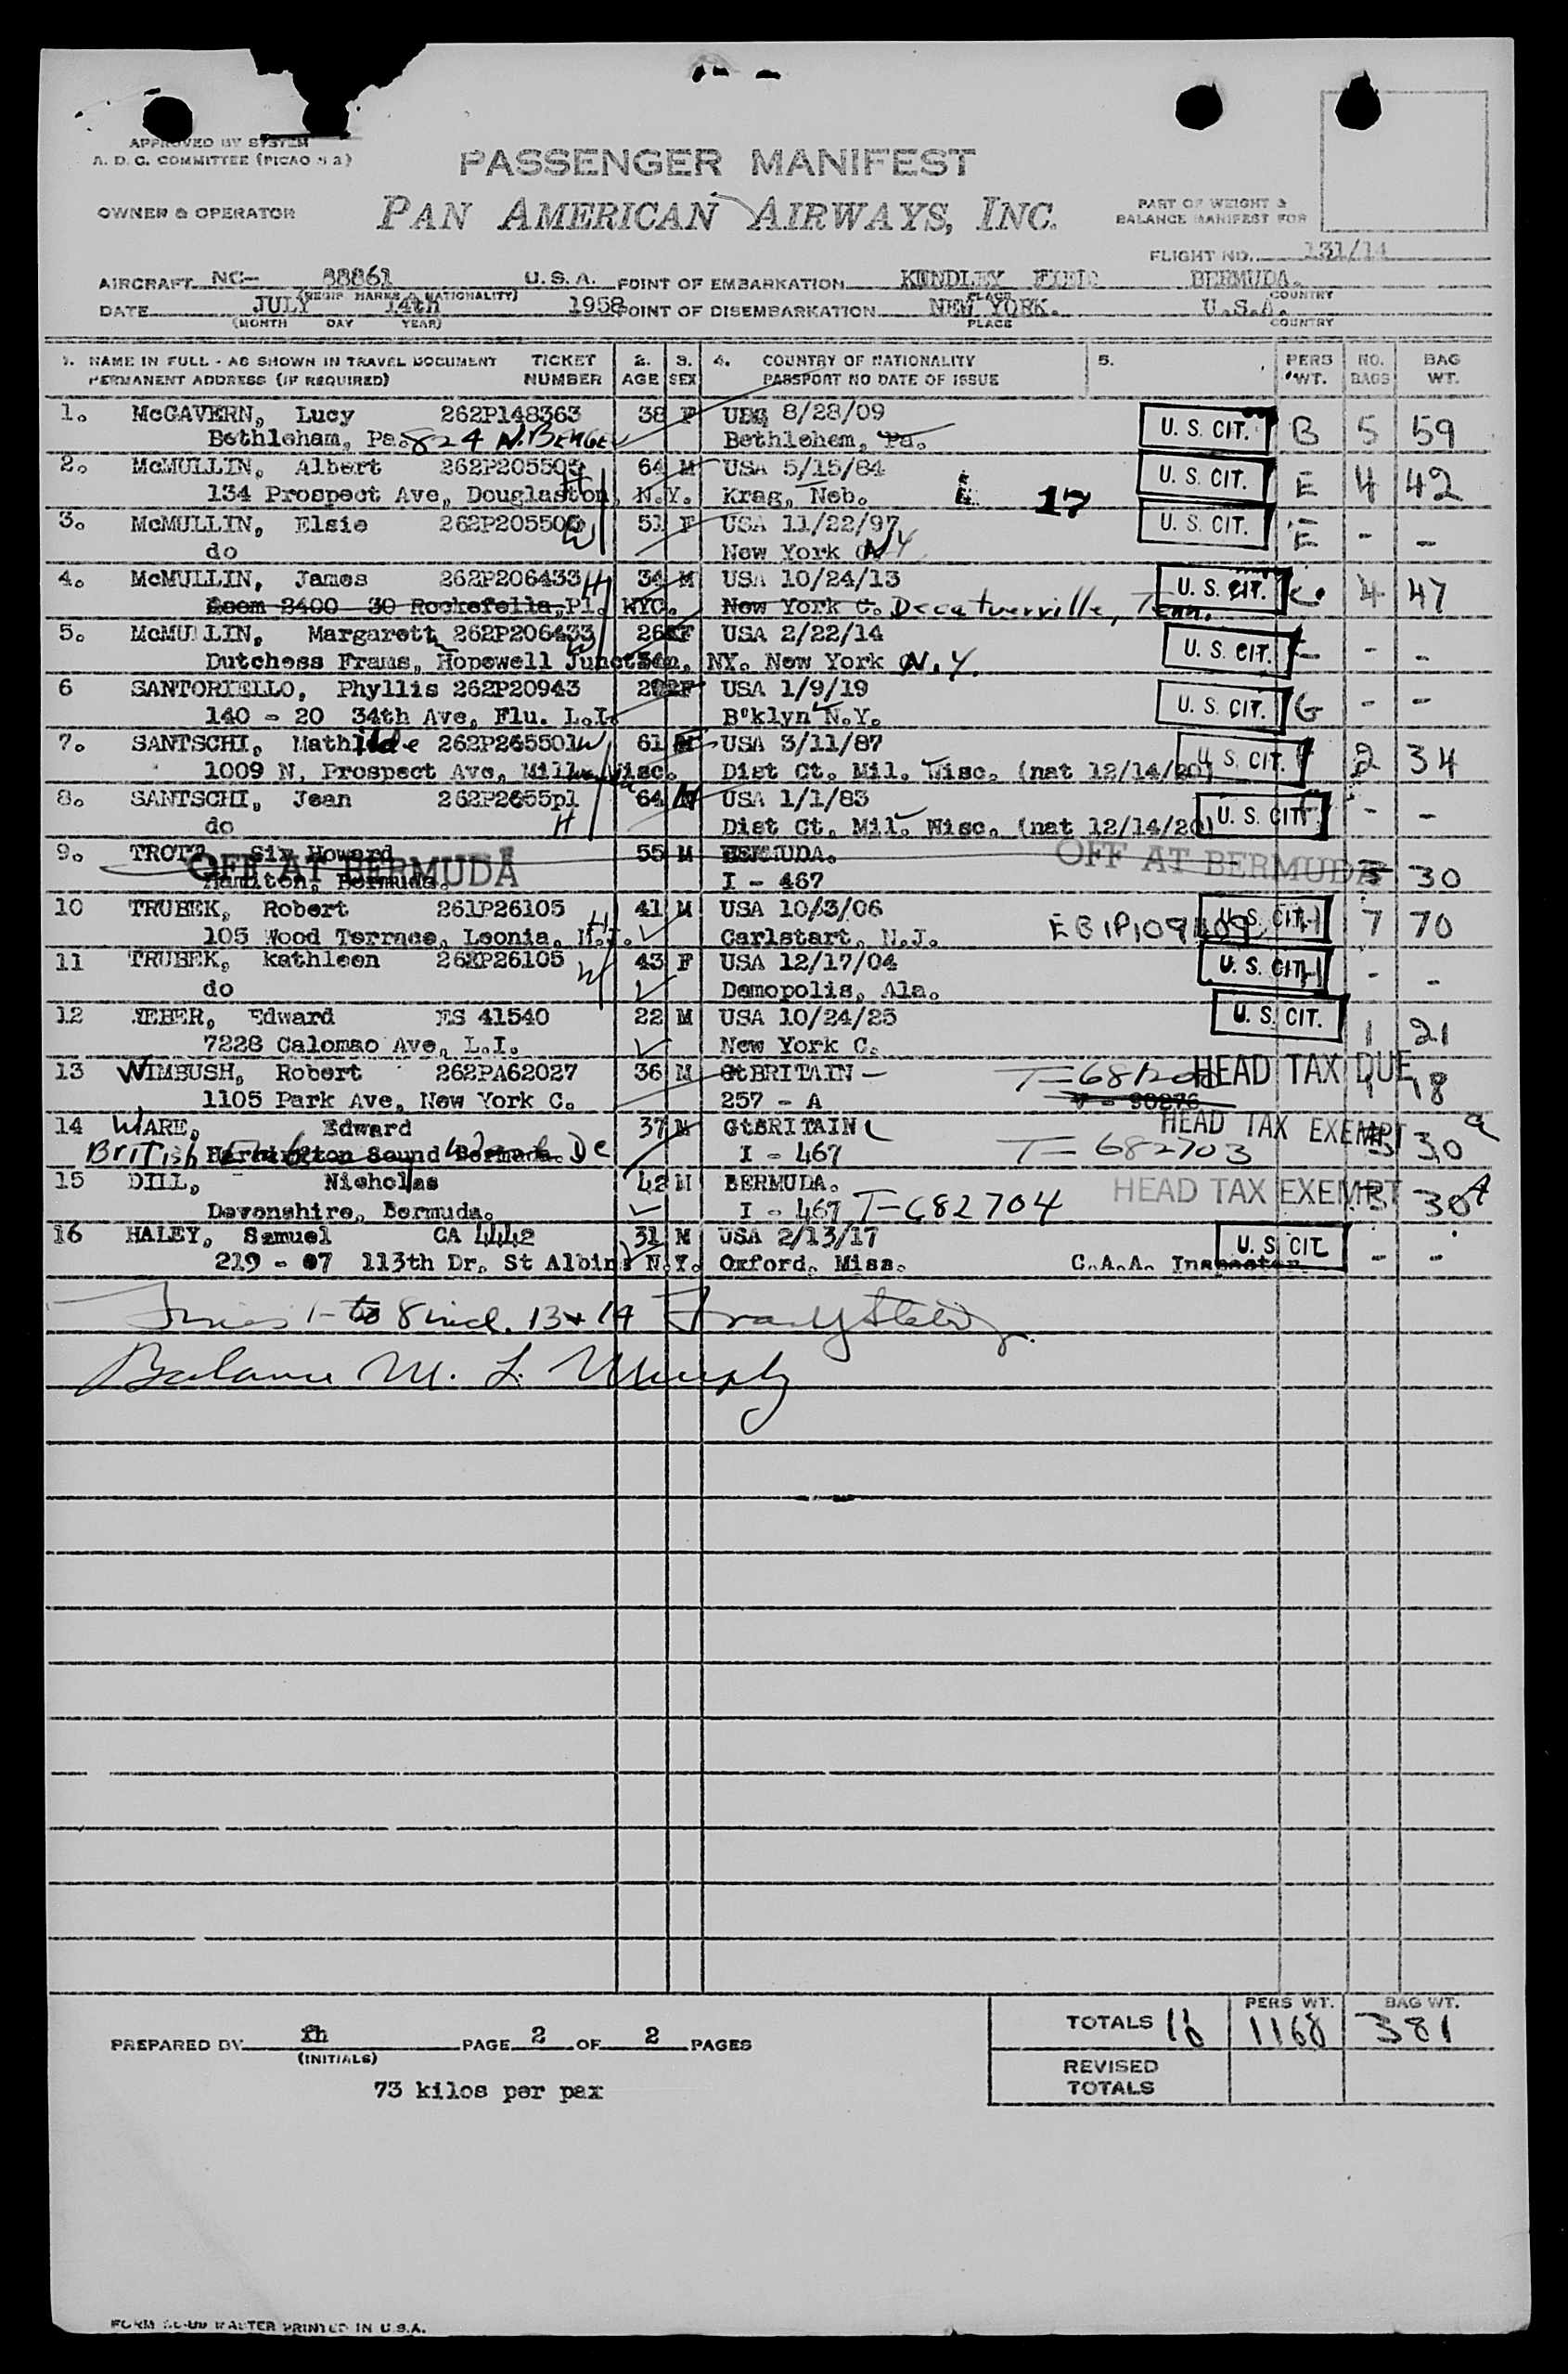 APPROVED BY SYSTEM
A. D. C. COMMITTEE (PICAO
PASSENGER MANIFEST
OWNER & OPERATOR
PAN AMERICAN AIRWAYS, INC.
PART OF WEIGHT &
BALANCE MANIFEST FOR
FLIGHT NO. 131/14
AIRCRAFT NC- 88861 U.S.A. POINT OF EMBARKATION KINDLEY FIELD BERMUDA.
(REGIS MARKS & NATIONALITY) PLACE COUNTRY
DATE JULY 14th 1958 POINT OF DISEMBARKATION NEW YORK. U.S.A.
(MONTH DAY YEAR) PLACE COUNTRY
1. NAME IN FULL - AS SHOWN IN TRAVEL DOCUMENT TICKET 2. 3. 4. COUNTRY OF NATIONALITY 5. PERS NO. BAG
PERMANENT ADDRESS (IF REQUIRED) NUMBER AGE SEX PASSPORT NO DATE OF ISSUE WT. BAGS WT.
1. McGAVERN, Lucy 262P148363 38 F 8/28/09 U. S. CIT. B 5 59
Bethleham, Pa. 824 N. Bethlehem, Pa.
2. McMULLIN, Albert 64 M USA 5/15/84 U. S. CIT. E 4 42
134 Prospect Ave, Douglaston, N.Y. Krag, Neb. 17
3. McMULLIN, Elsie 51 F USA 11/22/97 U. S. CIT. E - -
do New York N.Y
4. McMULLIN, James 262P206433 H 34 M USA 10/24/13 U. S. CIT. 4 47
Room 2400 30 Rockefella, Pl. NYC. New York C. Decaturville, Tenn.
5. McMULLIN, Margarett 262P206433 W 26 F USA 2/22/14 U. S. CIT. - - -
Dutchess Frams, Hopewell Junction, NY. New York N.Y.
6 SANTORIELLO, Phyllis 262P20943 F USA 1/9/19 U. S. CIT. G - -
140 - 20 34th Ave, Flu. L.I. B'klyn N.Y.
7. SANTSCHI, Mathilde 262P265501 W 61 USA 3/11/87 U. S. CIT. 2 34
1009 N. Prospect Ave, Wisc. Dist Ct. Mil. Wisc. (nat 12/14/20)
8. SANTSCHI, Jean 262P2655pl 64 M USA 1/1/83 U. S. CIT. - -
do H Dist Ct. Mil. Wisc. (nat 12/14/20)
9. TROTT, Sir Howard 55 M BERMUDA. OFF AT BERMUDA
OFF AT BERMUDA
Hamilton, Bermuda. I - 467 3 30
10 TRUBEK, Robert 261P26105 41 M USA 10/3/06 U. S. CIT. 7 70
105 Wood Terrace, Leonia, N.J. H Carlstart, N.J.
11 TRUBEK, kathleen 43 F USA 12/17/04 U. S. CIT. - -
do W Demopolis, Ala.
12 Edward ES 41540 22 M USA 10/24/25 U. S. CIT. 1 21
7228 Calomao Ave, L.I. New York C.
13 WIMBUSH, Robert 262PA62027 36 M GtBRITAIN - HEAD TAX DUE 1 18
1105 Park Ave, New York C. 257 - A
14 WARE, Edward 37 M GtBRITAIN HEAD TAX EXEMPT 3 30 a
British Harrington Sound Bermuda. I - 467 T - 682703
15 DILL, Nicholas 42 M BERMUDA. HEAD TAX EXEMPT 3 30 A
Devonshire, Bermuda. I - 467 T-682704
16 HALEY, Samuel CA 4442 31 M USA 2/13/17 U. S. CIT. - -
219 - 07 113th Dr. St Albin N.Y. Oxford, Miss. C.A.A. Inspector.
Lines 1- to 8 incl. 13 & 14
Balance M. L. Murphy
PREPARED BY fh PAGE 2 OF 2 PAGES
(INITIALS)
TOTALS 16 PERS WT. 1168 BAG WT. 381
REVISED
TOTALS
73 kilos per pax
PRINTED IN U.S.A.